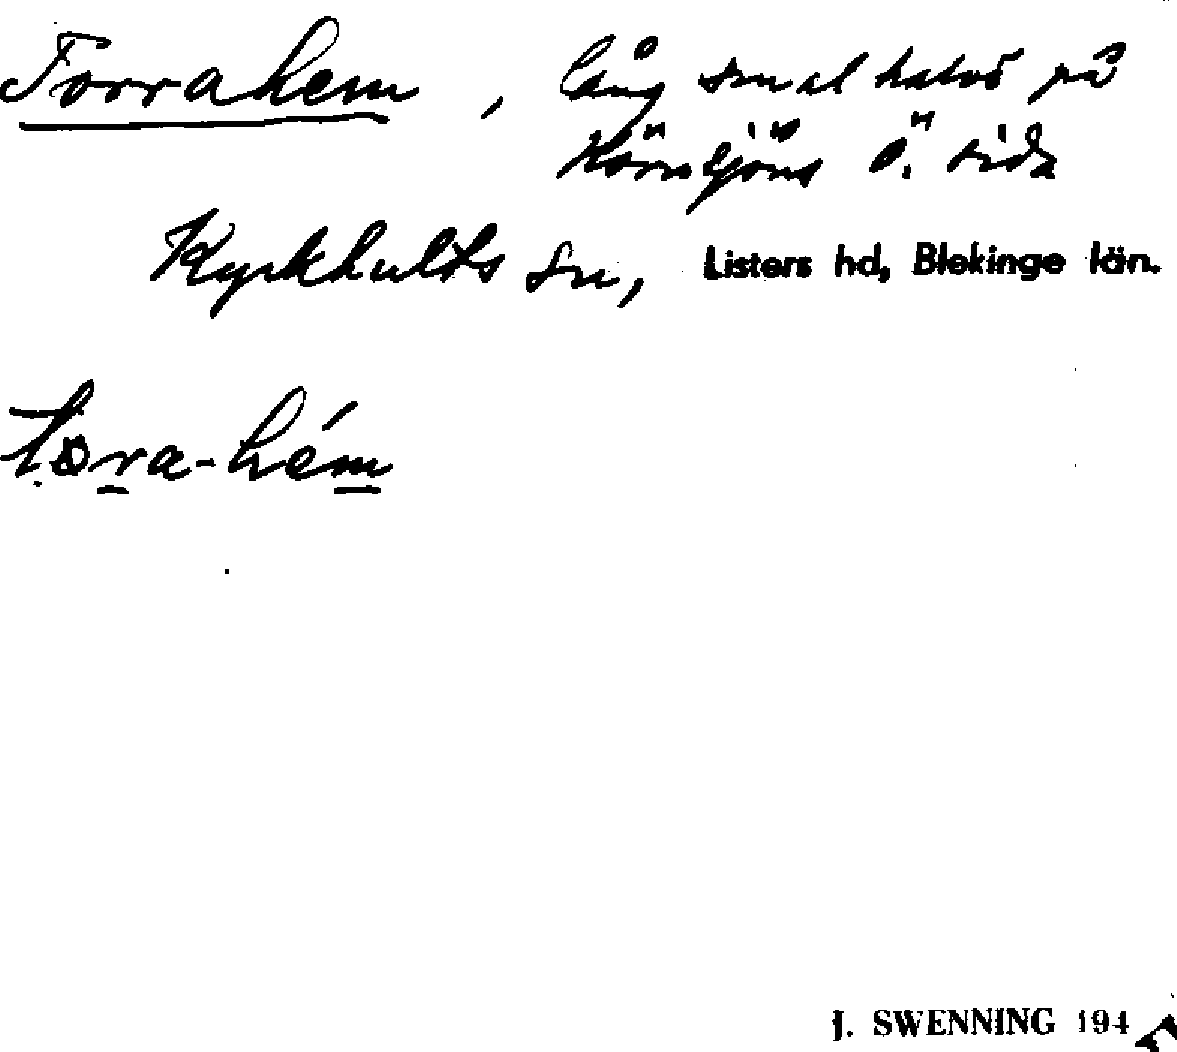 Torrahem, lång smal halvö på
Körnsjöns Ö. sida
Kyrkhults sn, Listers hd, Blekinge län.
tora-hém
J. SWENNING 194